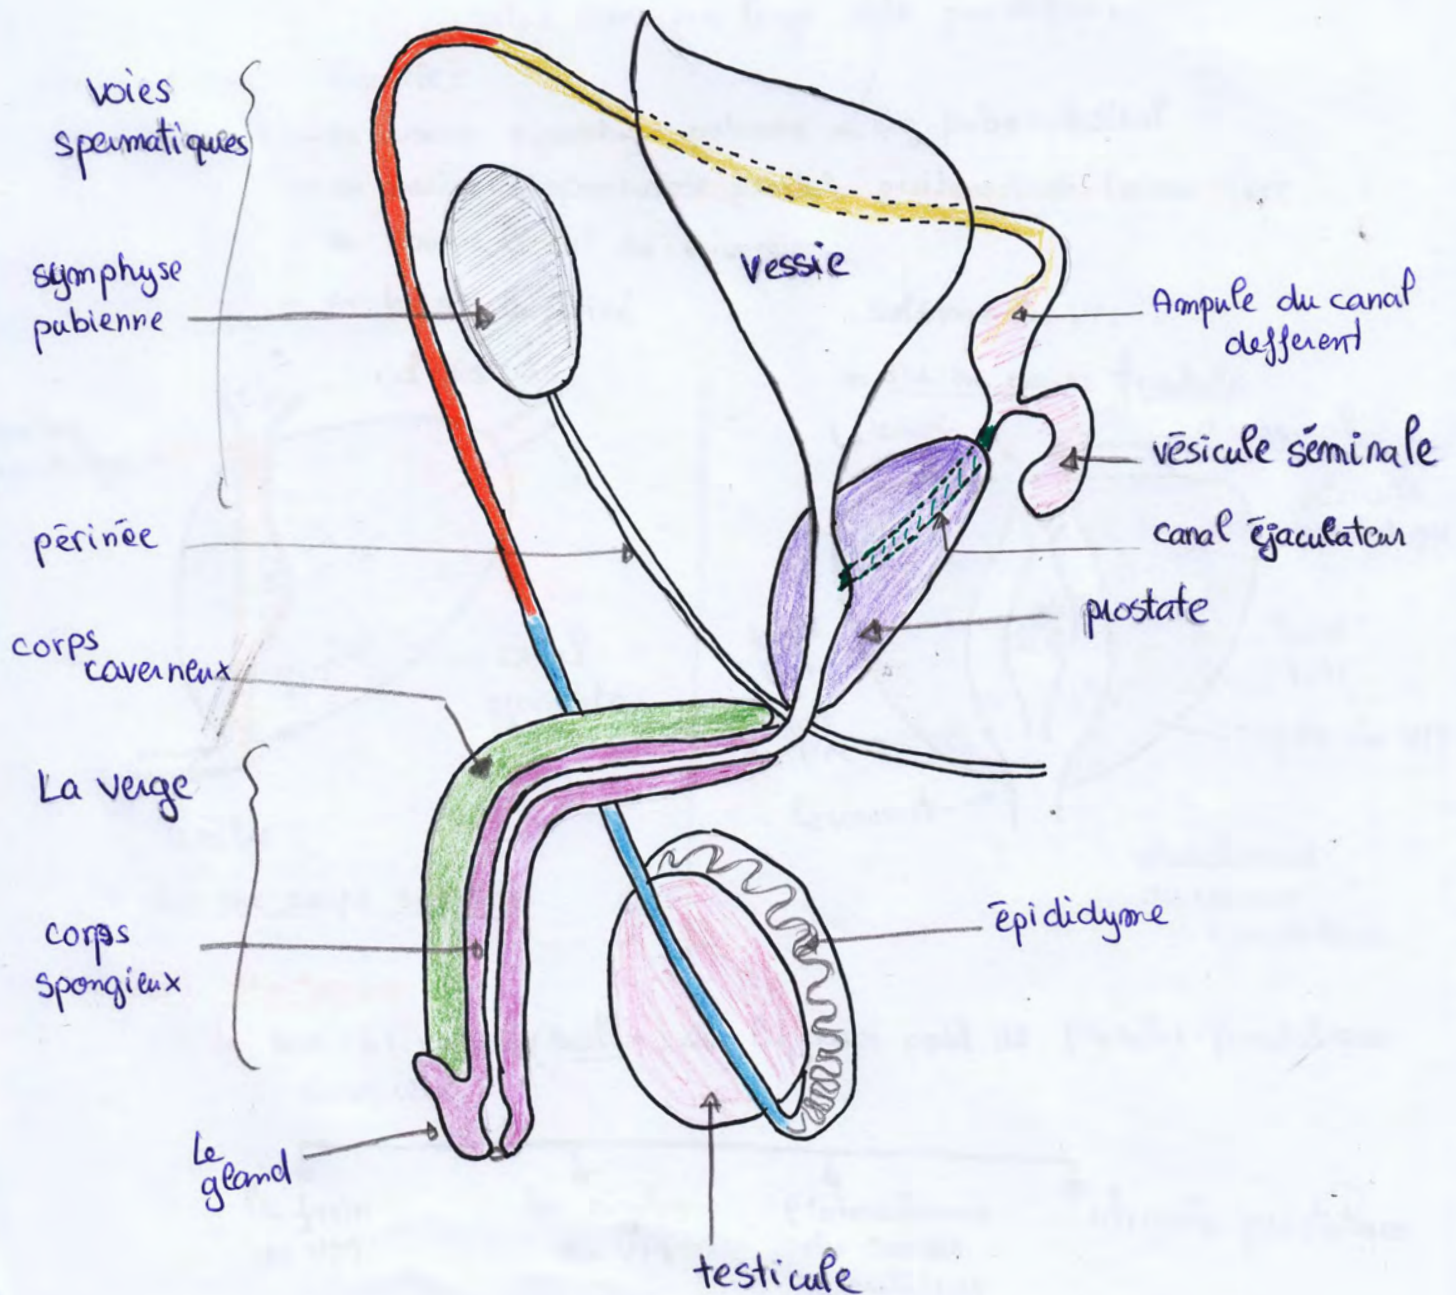 voies
spermatiques
symphyse
pubienne
périnée
corps
caverneux
La verge
corps
spongieux
Le
gland
vessie
Ampule du canal
defferent
vésicule séminale
canal éjaculateur
prostate
épididyme
testicule